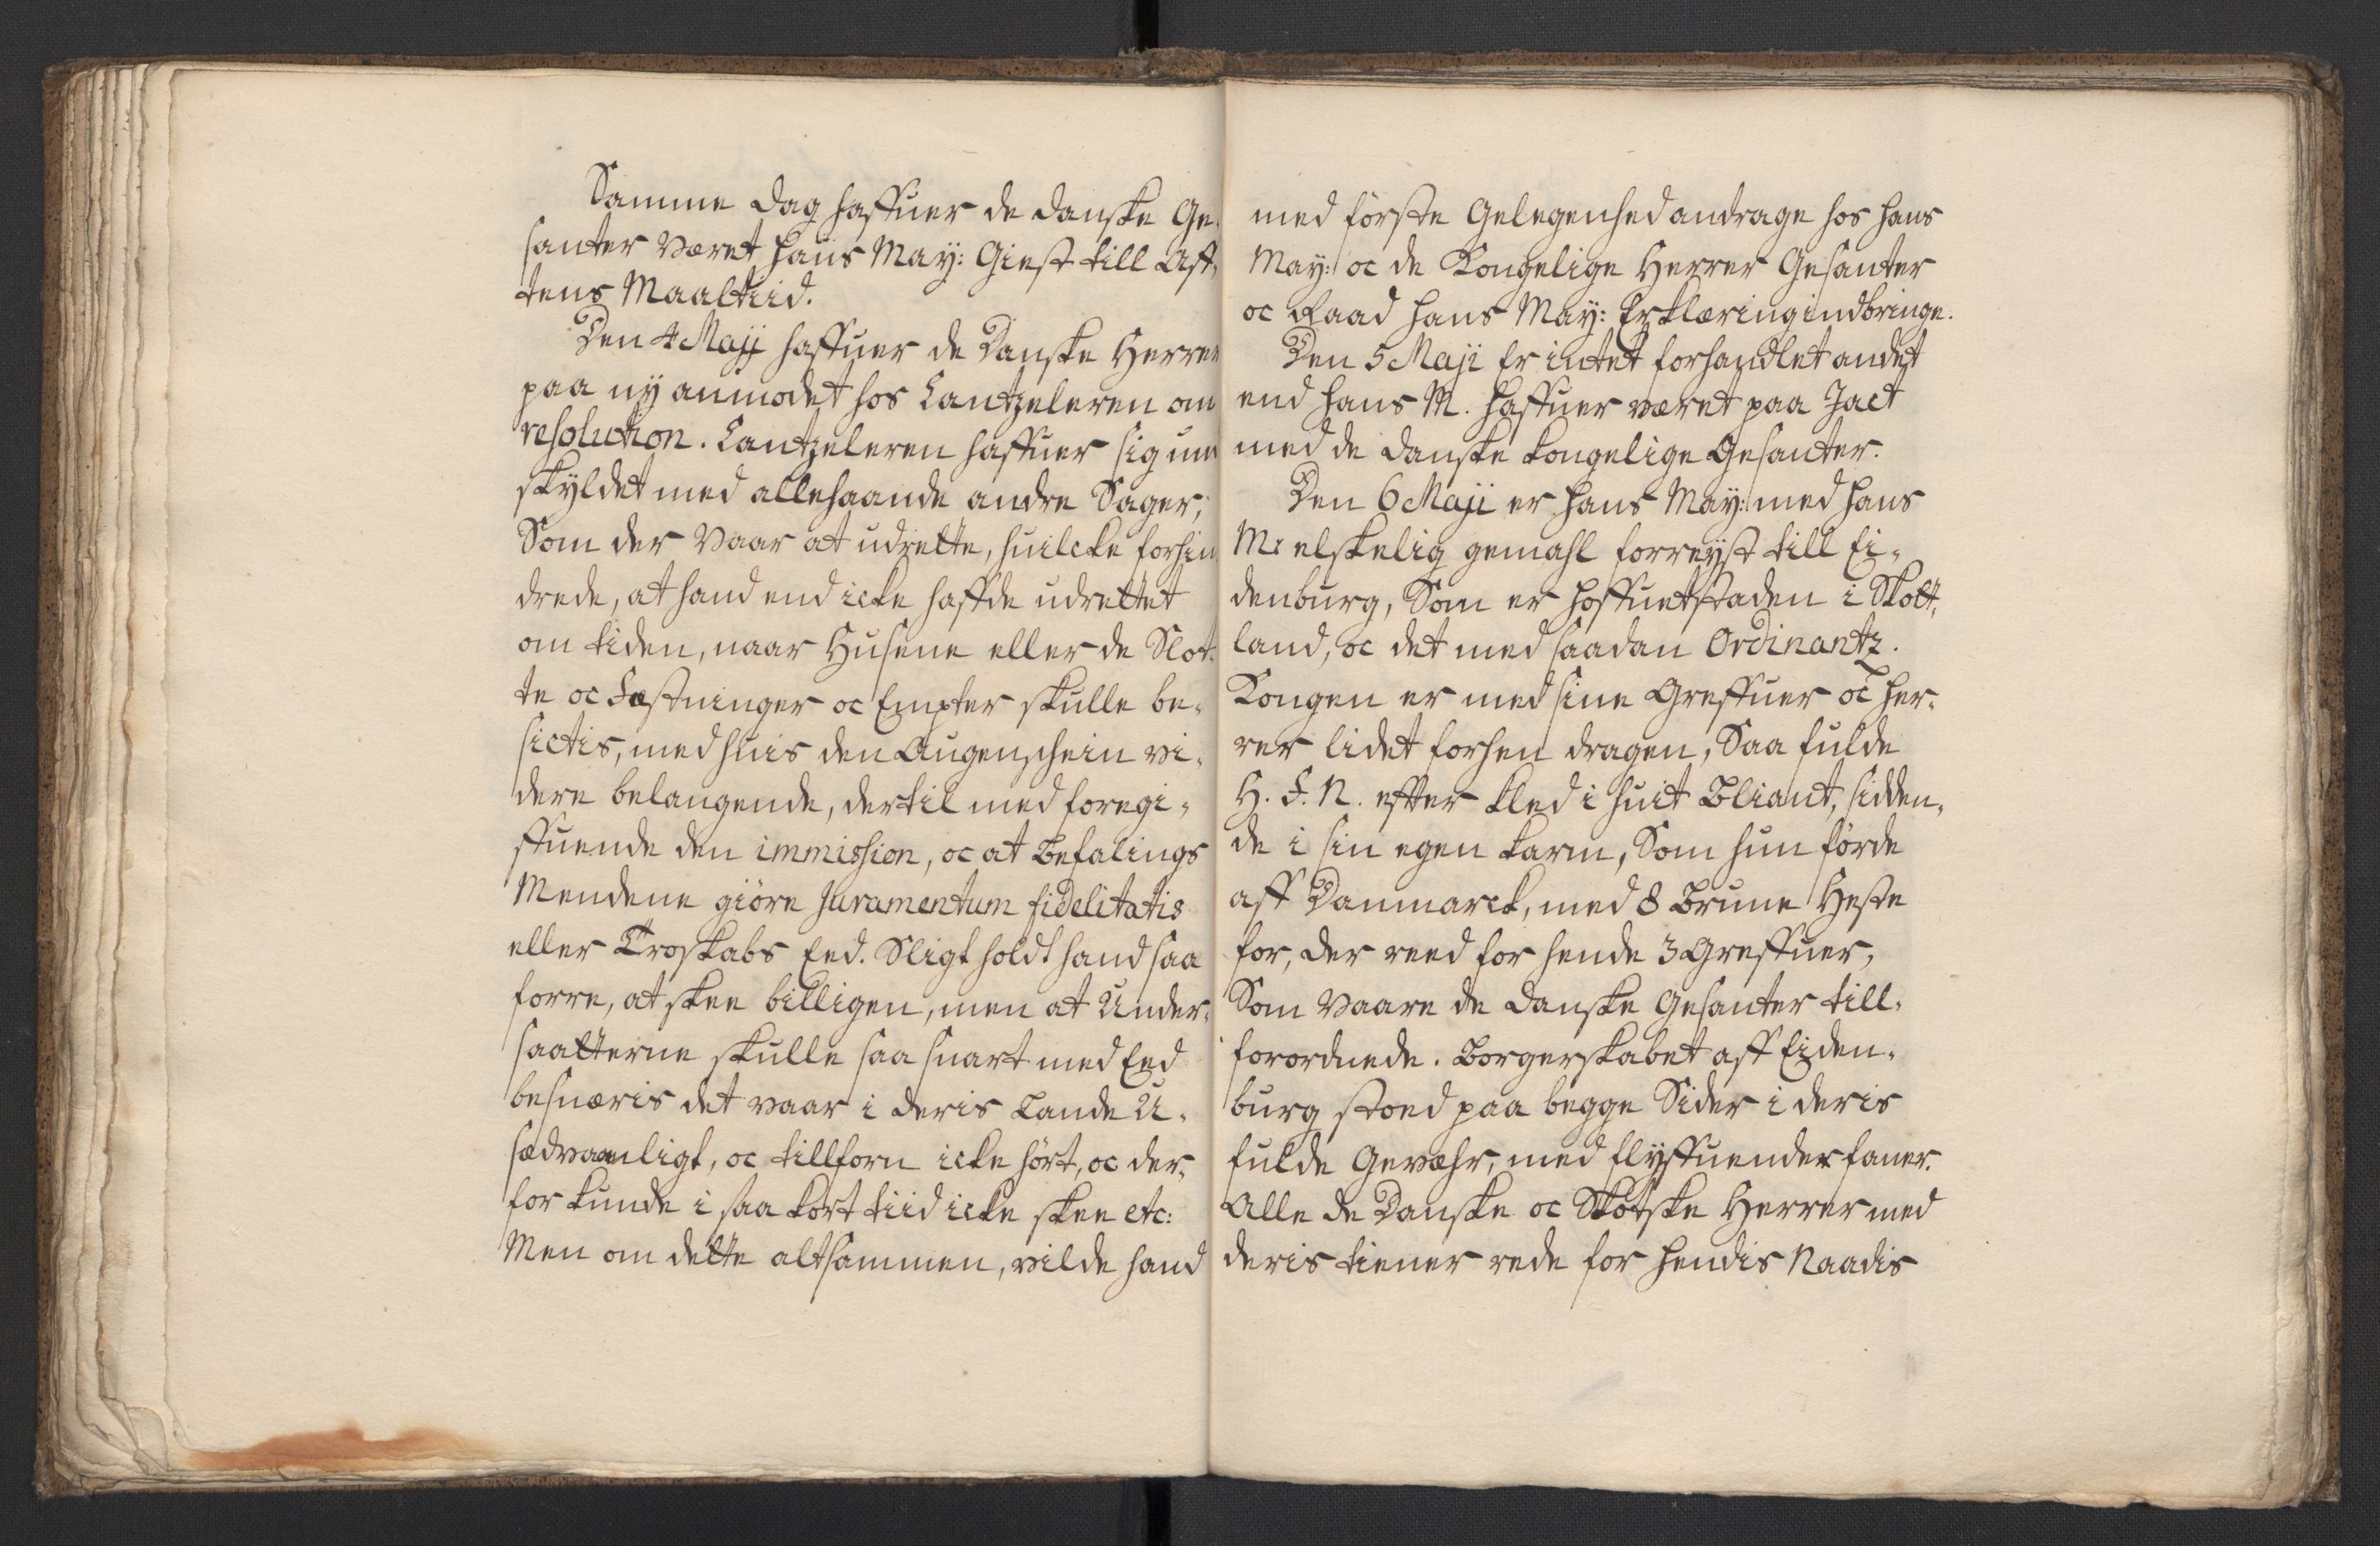 Samme Dag haffuer de Danske Ge,
santer Veret Hans May: Giest till Aff,
tens Maaltiid.
Den 4 Maji haffuer de Danske Herrer
paa ny anmodet hos Cantzeleren om
resolution. Cantzeleren haffuer sig und
skyldet med allehaande andre Sager,
Som der Vaar at udrette, huilcke forhin
drede, at hand end icke haffde udrettet
om tiden, naar Husene eller de Slot,
te oc Fæstninger oc Empter skulle be,
sictis, med huis den Augenschein vi,
dere belangende, dertil med foregi,
ffuende den immission, oc at Befalings
Mendene giöre Juramentum fidelitatis
eller Troskabs Eed. Sligt holdt hand saa
forre, at skee billigen, men at Under,
saatterne skulle saa snart med Eed
besuæris det vaar i deris Lande U,
sædvaanligt, oc tillforn icke hört, oc der,
for kunde i saa kort tiid icke skee etc:
Men om dette altsammen, vilde hand
med förste Gelegenhed andrage hos Hans
May: oc de Kongelige Herrer Gesanter
oc Raad Hans May: Erklæring indbringe.
Den 5 Maji Er intet forhandlet andet
end Hans M. Haffuer veret paa Jact
med de Danske Kongelige Gesanter.
Den 6 Maji er Hans May: med Hans
M: elskelig gemahl forreyst till Ei,
denburg, Som er Hoffuetstaden i Skott,
land, oc det med saadan Ordinantz.
Kongen er med sine Greffuer oc Her,
rer lidet forhen dragen, Saa fulde
H. F. N. effter kled i huit Bliant, sidden,
de i sin egen karm, Som hun förde
aff Danmarck, med 8 Brune Heste
for, der reed for hende 3 Greffuer,
Som Vaare de Danske Gesanter till,
forordnede. Borgerskabet aff Eiden,
burg stoed paa begge Sider i deris
fulde Gevæhr, med flyffuender faner.
Alle de Danske oc Skotske Herrer med
deris tiener rede for Hendis Naadis